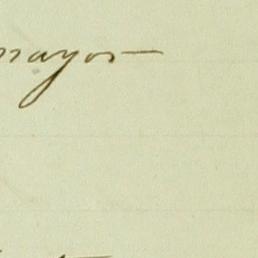 mayos —